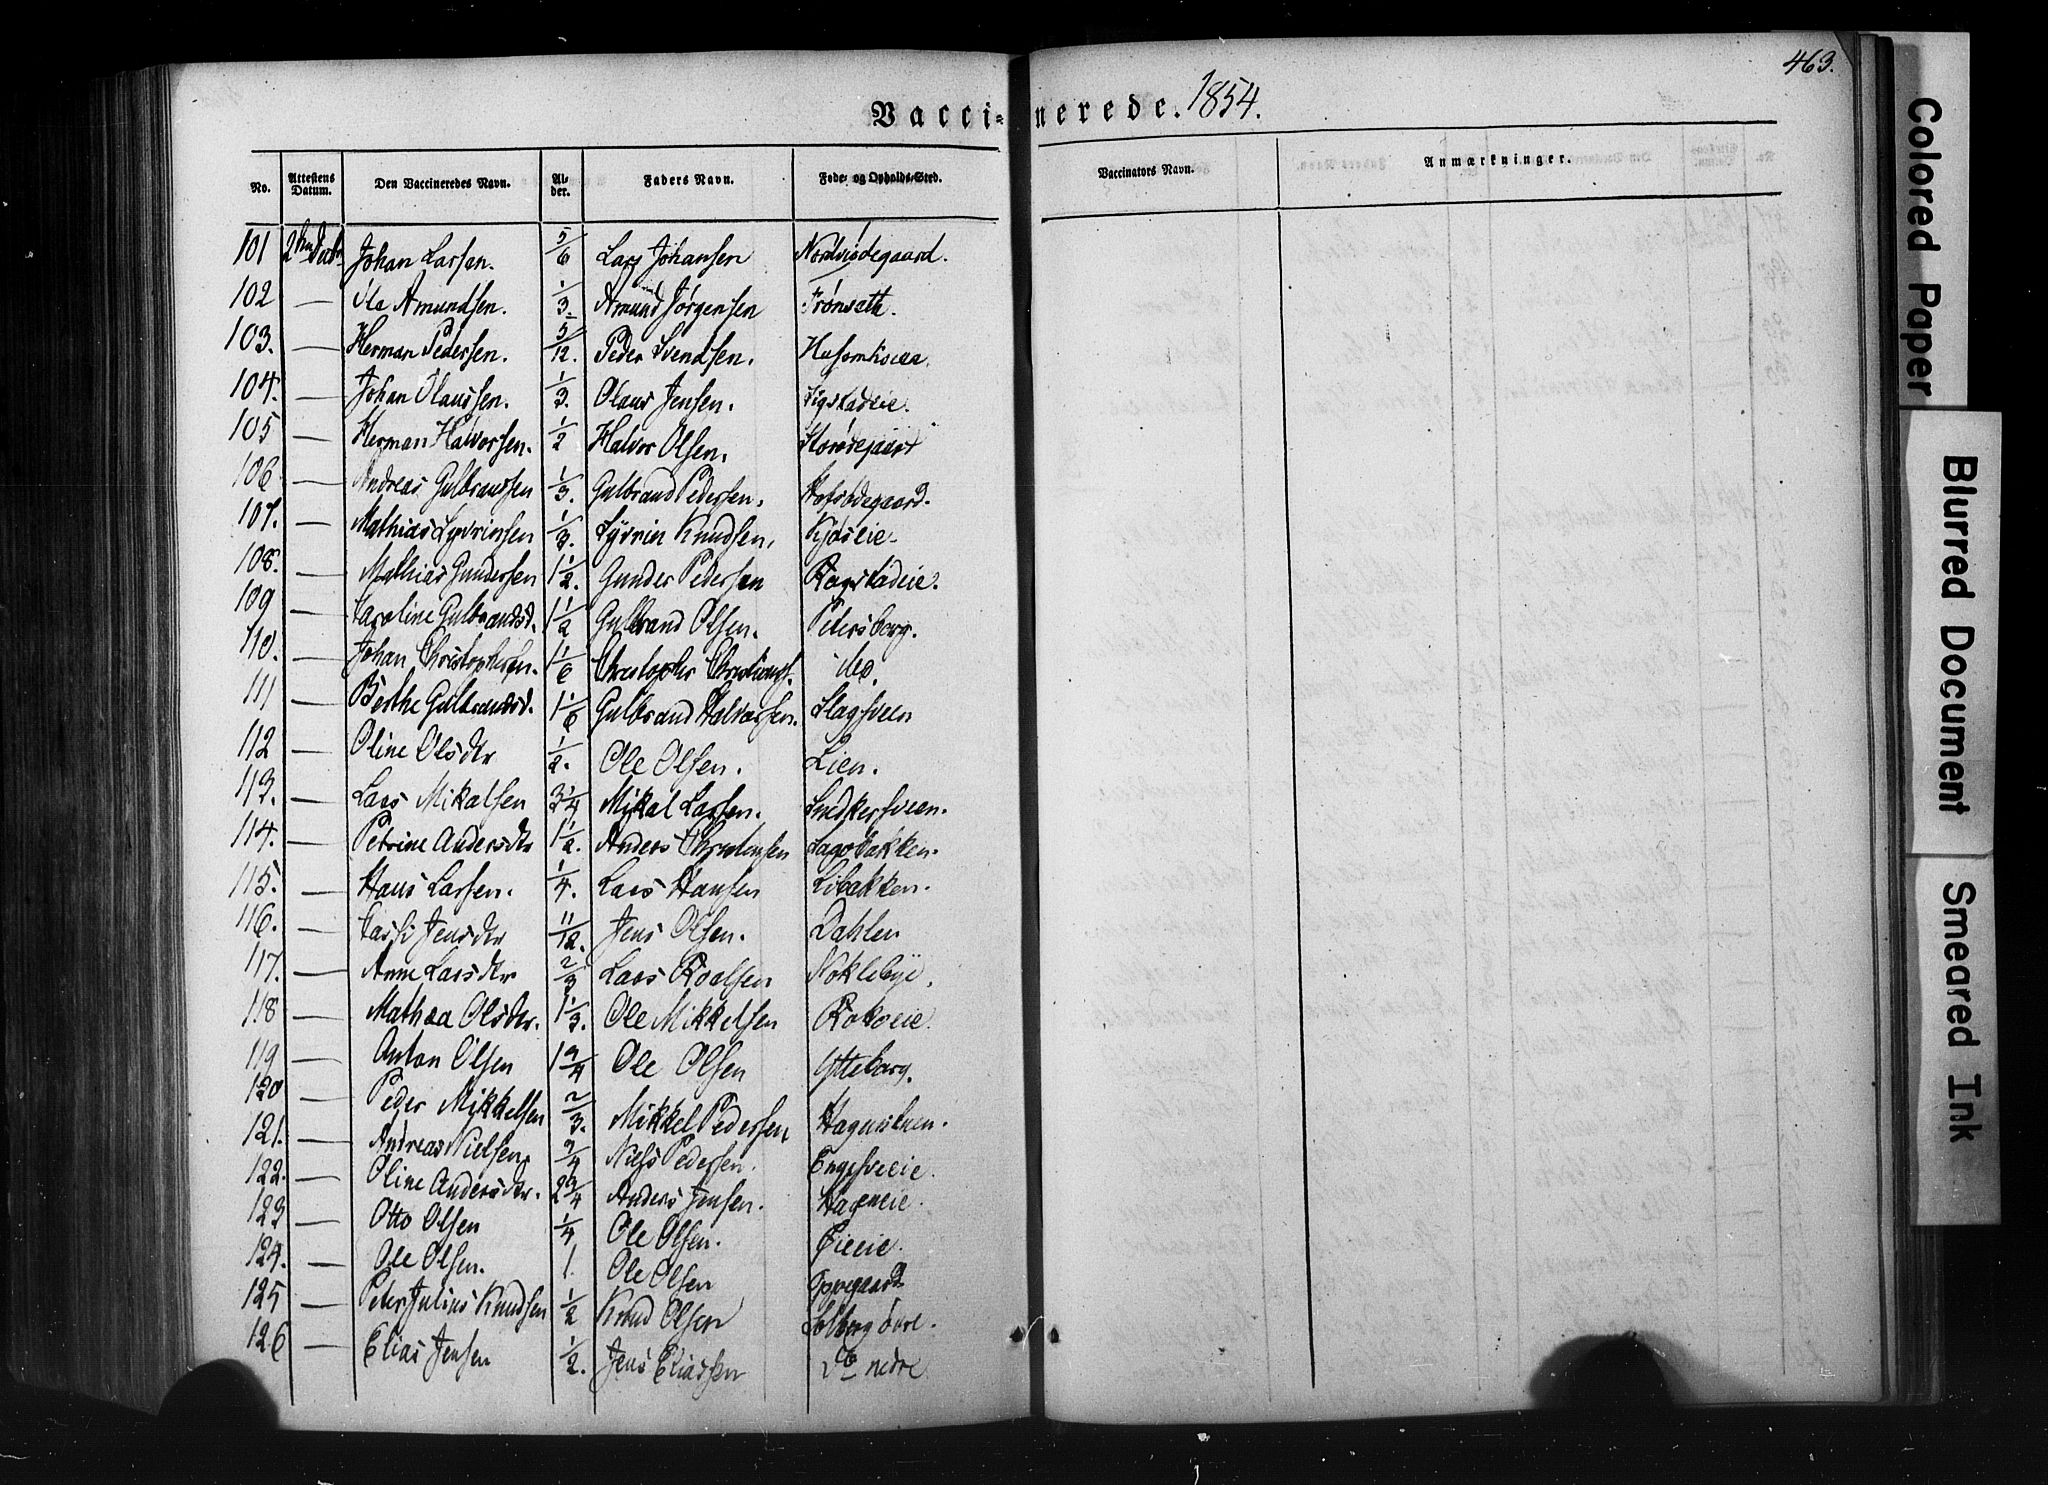 463.
Vacci- nerede. 1854.
No. Attestens Datum. Den Vaccineredes Navn. Al- der. Faders Navn. Føde- og Opholds-Sted. Vaccinators Navn. Anmærkninger.
101 2den Decbr Johan Larsen. 5/6 Lars Johansen Nordvisdegaard.
102 — Ole Amundsen. 1/3. Amund Jørgensen Trønsath.
103. — Herman Pedersen. 5/12. Peder Svendsen.
104. — Johan Olaussen. 1/3. Olaus Jensen. Sigstadeie.
105 — Herman Halvorsen. 1/2 Halvor Olsen.
106 — Andreas Gulbrandsen 1/3. Gulbrand Pedersen. Hofsødegaard.
107. — Mathias Syvrinsen 1/3. Syvrin Knudsen. Kjøseie
108. — Mathias Gundersen 1 1/2. Gunder Pedersen Rogstadeie.
109 — Karoline Gulbrandsd. 1 1/2 Gulbrand Olsen. Petersborg.
110. — Johan Christophersen. 1 1/6 Christopher Christians. do.
111 — Berthe Gulbrandsd. 1 1/6 Gulbrand Halvorsen. Slagsveen
112 — Oline Olsdtr 1/2. Ole Olsen. Lien.
113. — Lars Mikalsen 3 1/4 Mikal Larsen. Snedkersveen.
114. — Petrine Andersdtr 1 1/2. Anders Christensen Sagbakken.
115. — Hans Larsen. 1/4. Lars Hansen Libakken.
116. — Jensdtr 11/12. Jens Olsen. Dahlen
117. — Anne Larsdtr 2/3 Lars Roalsen Noklebye.
118 — Mathea Olsdtr. 1 1/3. Ole Mikkelsen Rokoeie.
119 — Anton Olsen 1 3/4 Ole Olsen Ytteborg.
120 Peder Mikkelsen 2/3. Mikkel Pedersen Hagenstuen.
121. — Andreas Nielsen. 3/4 Niels Pedersen. Engesveeie.
122. — Oline Andersdtr. 2 3/4 Anders Jensen. Hageneie.
123 — Otto Olsen 1/4 Ole Olsen. Øieeie.
124. — Ole Olsen. 1. Ole Olsen Oppegaard
125 — Peter Julius Knudsen 1/2 Knud Olsen Solberg øvre.
126 — Elias Jensen 1/2. Jens Eliassen Do nedre
Colored Paper
Blurred Document
Smeared Ink